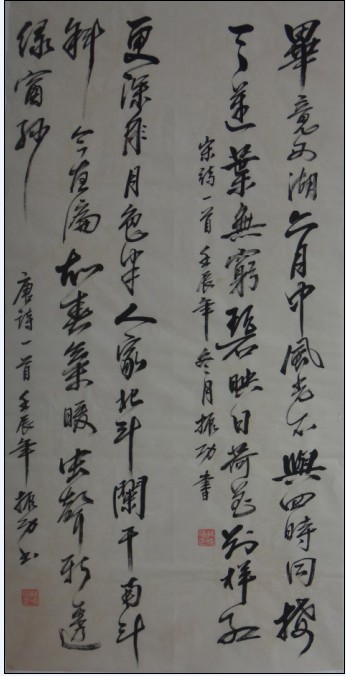 畢竟西湖六月中風光不與四時同接
天蓮葉無窮碧映日荷花別樣紅
宋詩一首壬辰年冬月振功書
更深月色半人家北斗闌干南斗
斜今夜偏知春氣暖虫聲新透
绿窗紗
唐詩一首壬辰年振功书